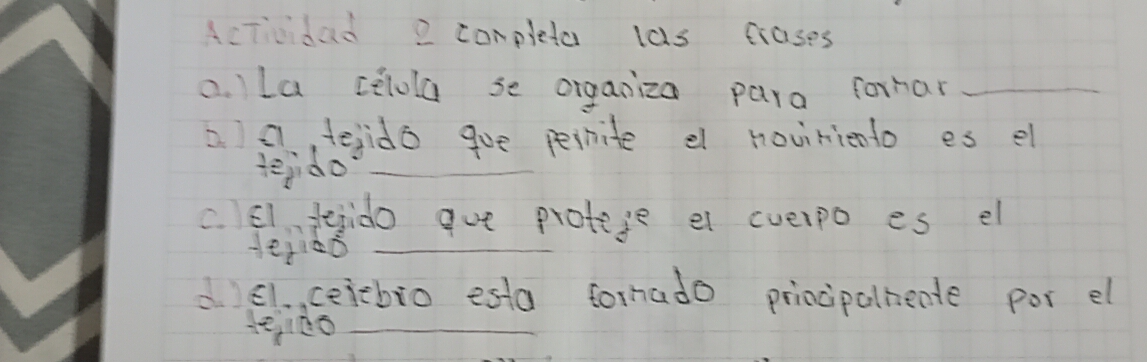 Actividad 2 completa las frases
a.) La célula se organiza para formar ______
b.) El tejido que permite el movimiento es el
tejido ______
c.) El tejido que proteje el cuerpo es el
tejido ______
d.) El cerebro esta formado principalmente por el
tejido ______